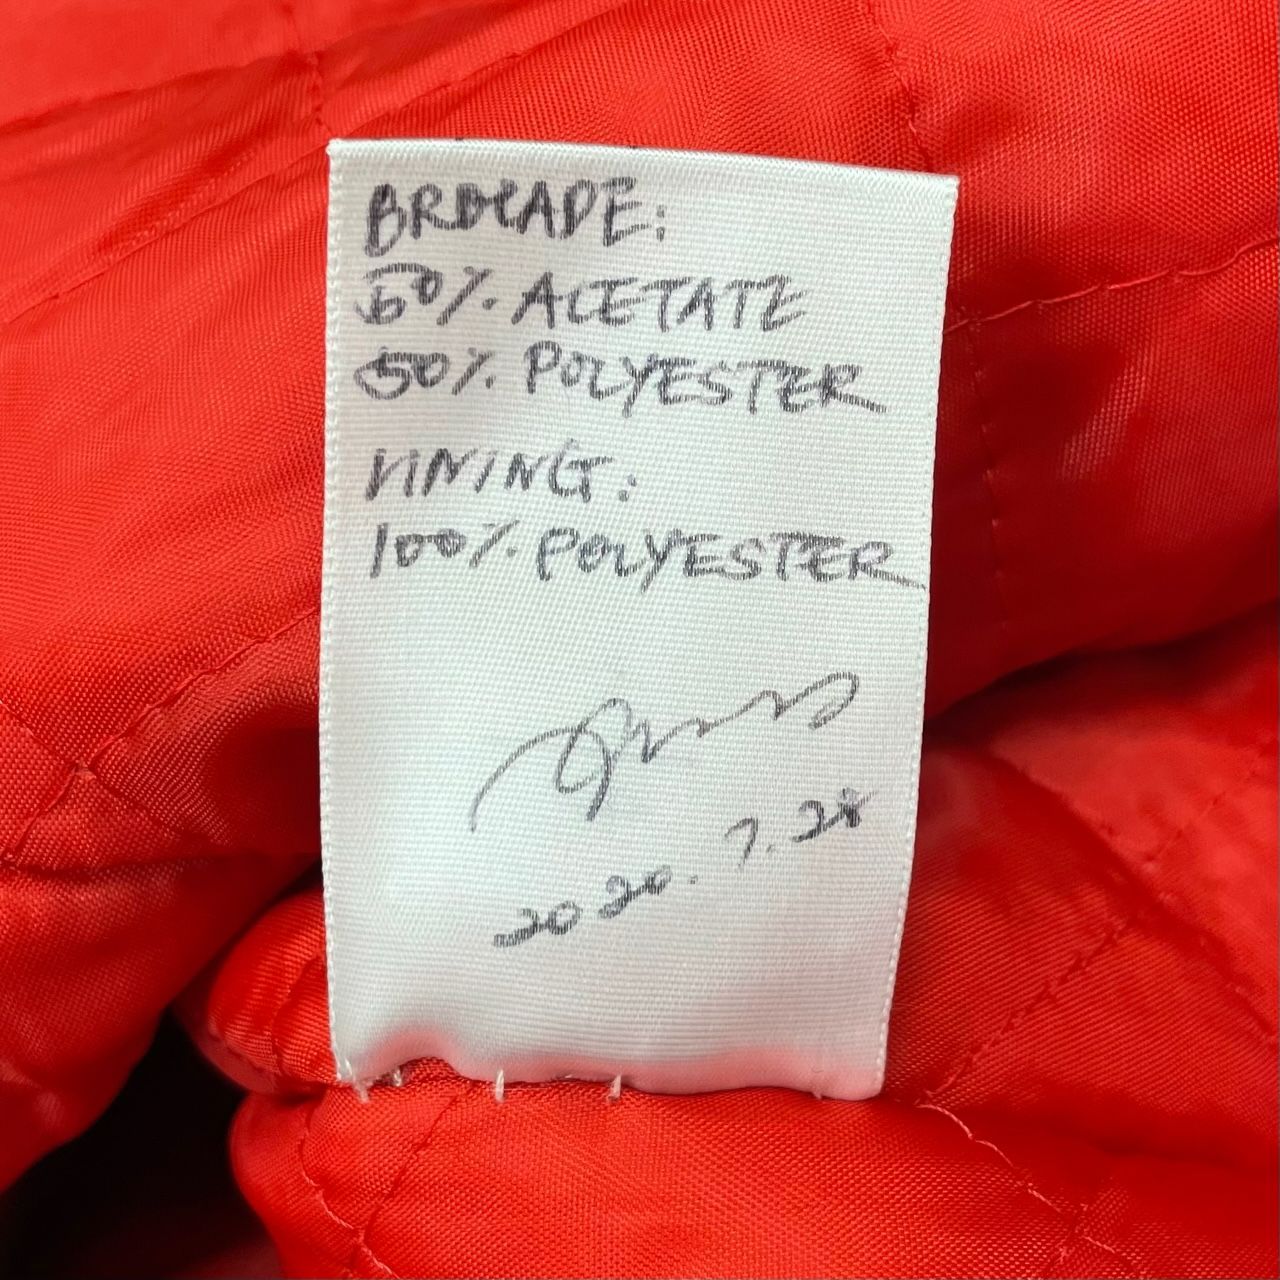 BROCADE:
50% ACETATE
50% POLYESTER
LINING:
100% POLYESTER
2020. 7. 28